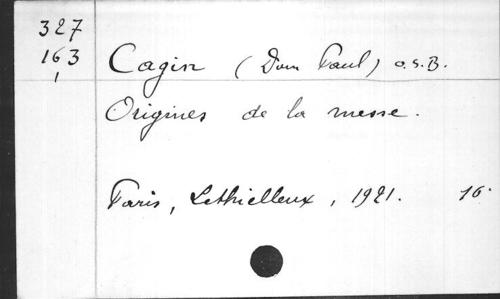 327
163
1
Cagin (Dom Paul) O.S.B.
Origines de la messe.
Paris, Lethielleux, 1921. 16